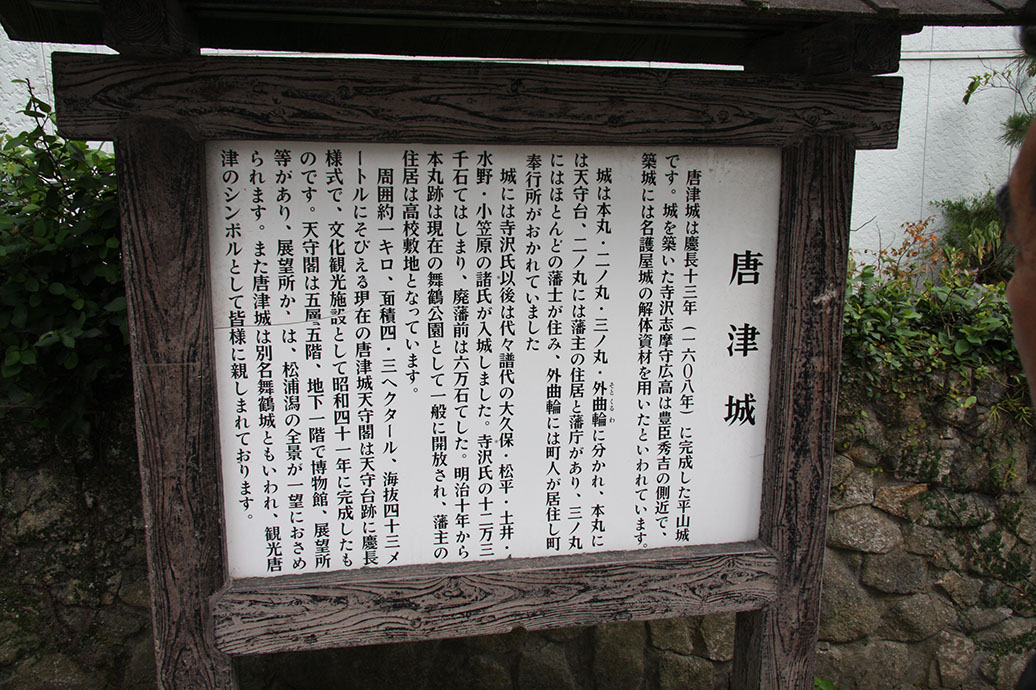 唐津城
唐津城は慶長十三年（一六〇八年）に完成した平山城
です。城を築いた寺沢志摩守広高は豊臣秀吉の側近で、
築城には名護屋城の解体資材を用いたといわれています。
城は本丸・二ノ丸・三ノ丸・外曲輪に分かれ、本丸に
そとくるわ
は天守台、二ノ丸には藩主の住居と藩庁があり、三ノ丸
にはほとんどの藩士が住み、外曲輪には町人が居住し町
奉行所がおかれていました
城には寺沢氏以後は代々譜代の大久保・松平・土井・
水野・小笠原の諸氏が入城しました。寺沢氏の十二万三
千石てはしまり、廃藩前は六万石てした。明治十年から
本丸跡は現在の舞鶴公園として一般に開放され、藩主の
住居は高校敷地となっています。
周囲約一キロ、面積四・三ヘクタール、海抜四十三メ
ートルにそびえる現在の唐津城天守閣は天守台跡に慶長
様式で、文化観光施設として昭和四十一年に完成したも
のです。天守閣は五層五階、地下一階で博物館、展望所
等があり、展望所か は、松浦潟の全景が一望におさめ
られます。また唐津城は別名舞鶴城ともいわれ、観光唐
津のシンボルとして皆様に親しまれております。